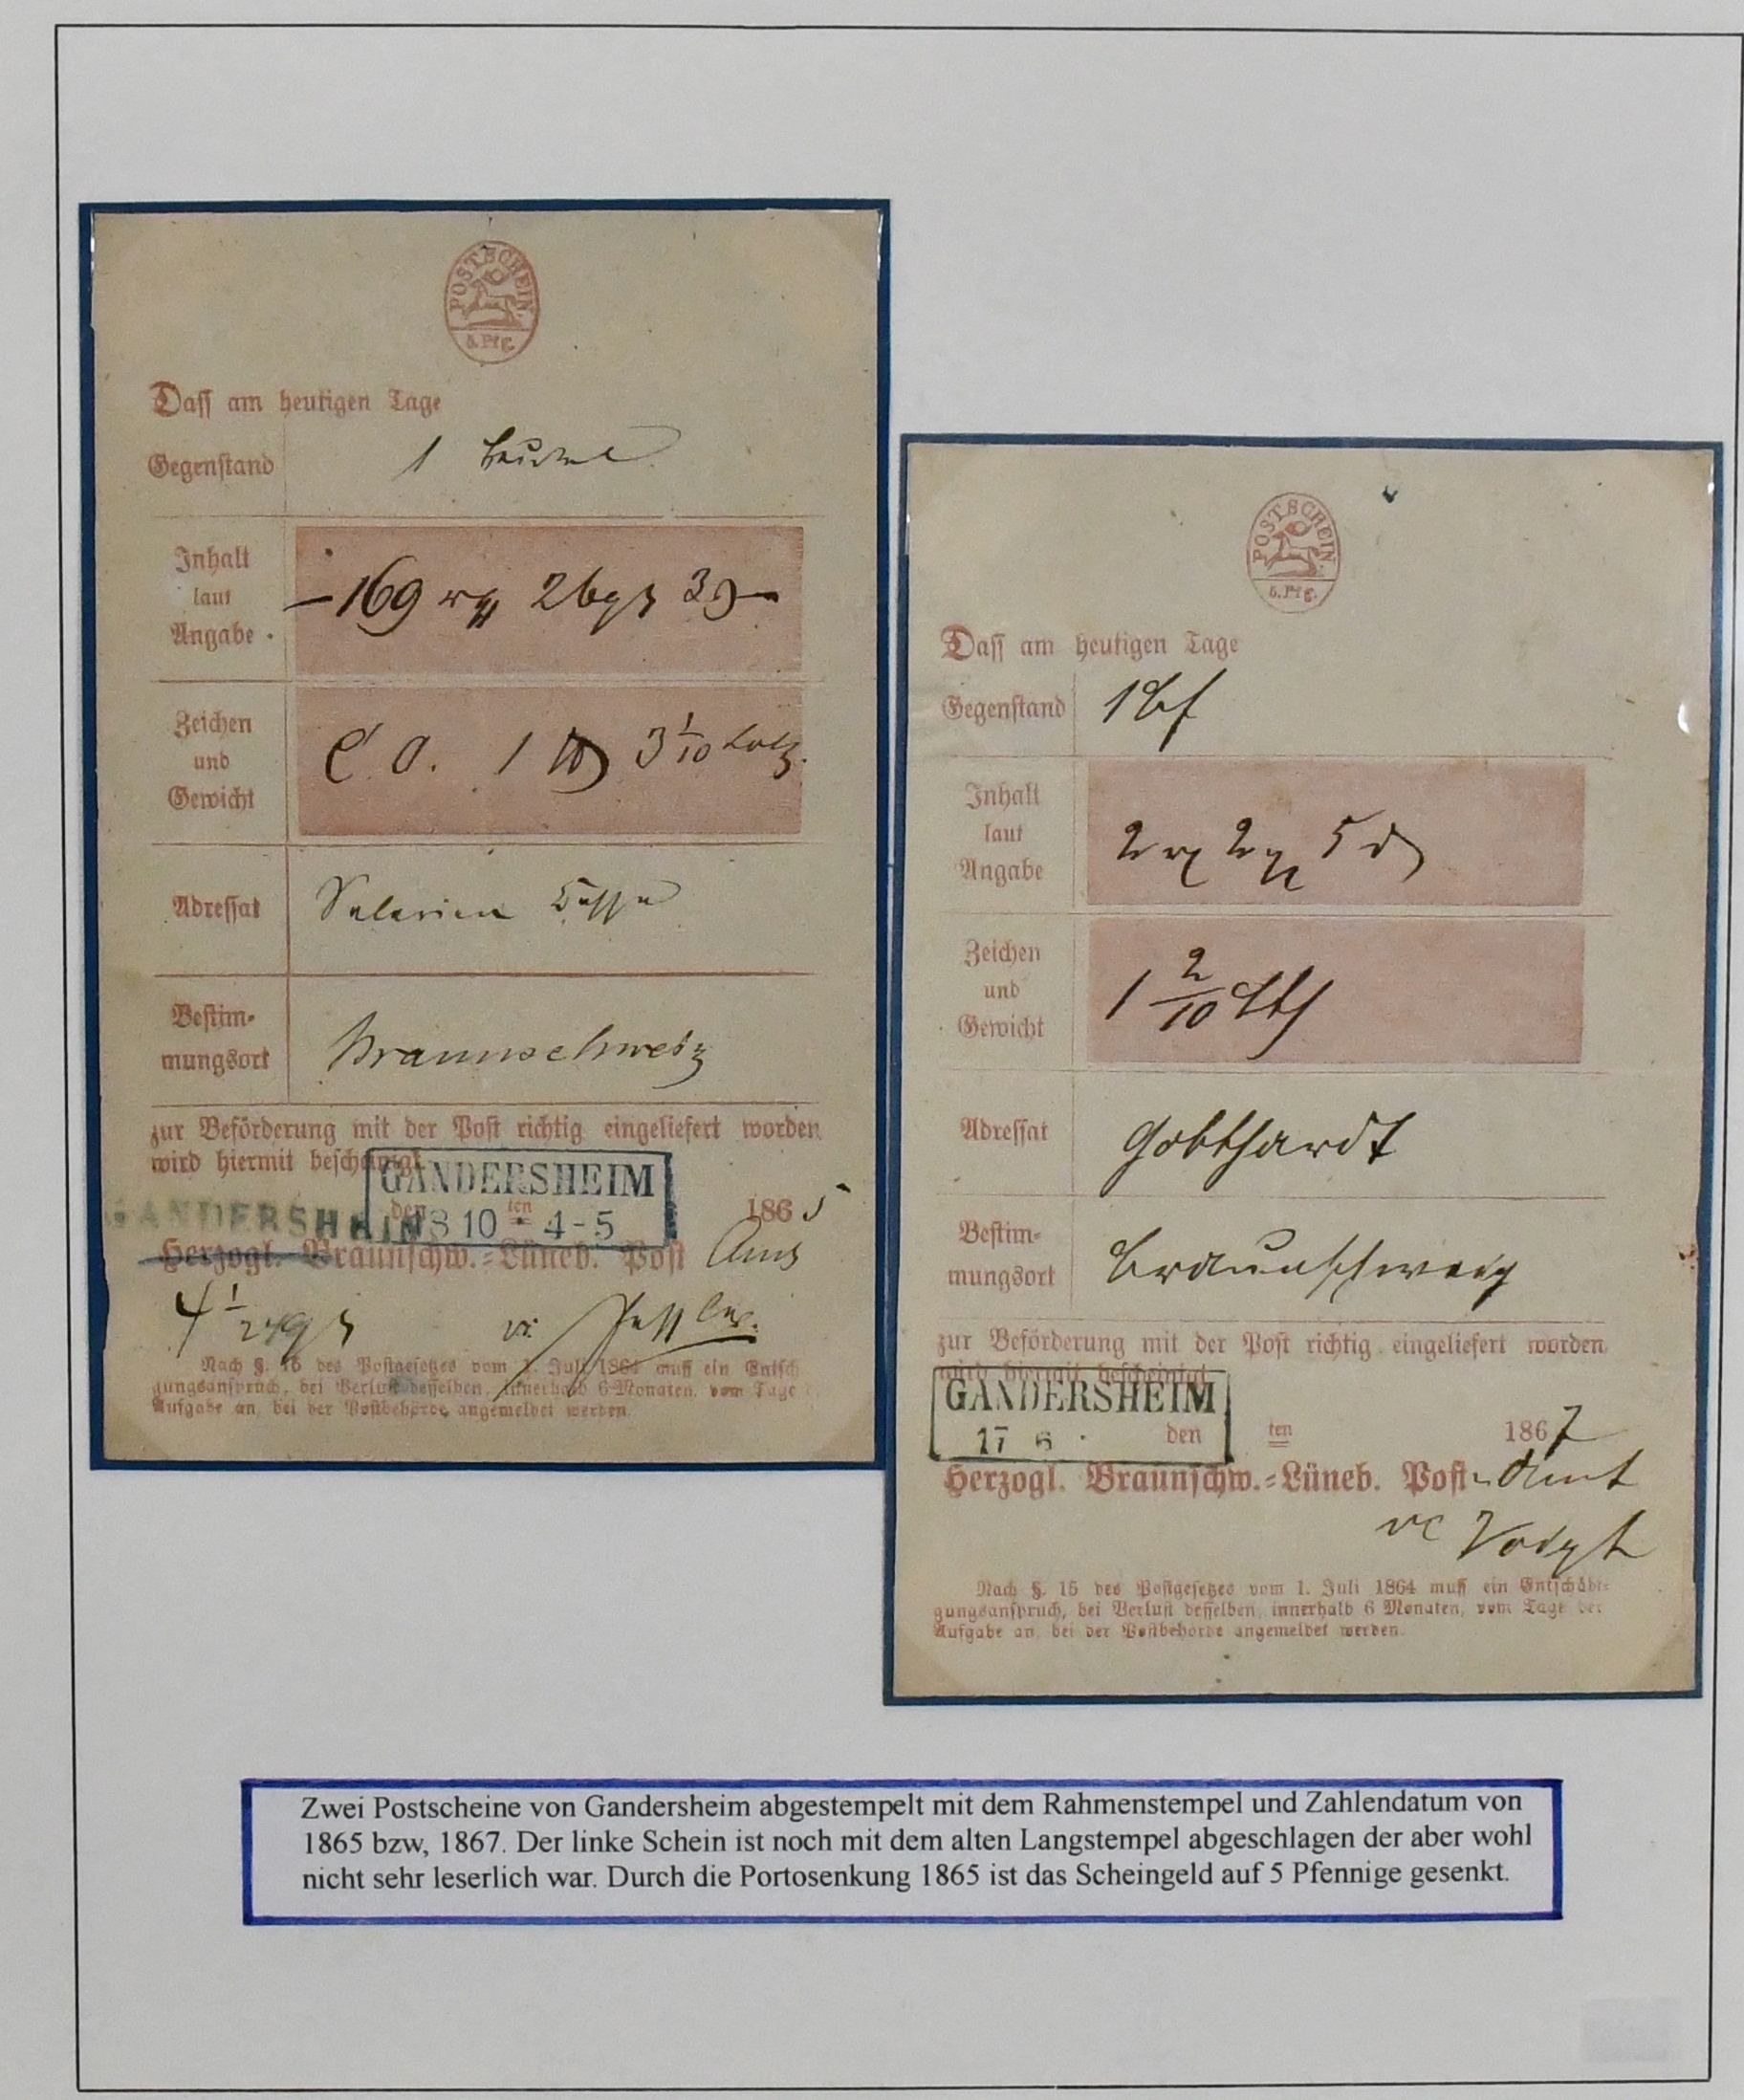 POSTSCHEIN
5. Pfg.
Daſſ am heutigen Tage
Gegenſtand 1
Inhalt
laut
Angabe
169 26 3
Zeichen
und
Gewicht
C. O. 1 3 1/10 Loth
Adreſſat
Salarien Casse
Beſtim-
mungsort
Braunschweig
zur Beförderung mit der Poſt richtig eingeliefert worden
wird hiermit beſcheinigt.
GANDERSHEIM
den 8 10 ten 4-5
1865
GANDERSHEIM
Herzogl. Braunſchw.-Lüneb. Poſt Amt
4 1/2
Nach §. 15 des Poſtgeſetzes vom 1. Juli 1864 muſſ ein Entſch
gungsanſpruch, bei Verluſt deſſelben, innerhalb 6 Monaten, vom Tage
Aufgabe an, bei der Poſtbehörde angemeldet werden.
POSTSCHEIN
5. Pfg.
Daſſ am heutigen Tage
Gegenſtand 1 Bf
Inhalt
laut
Angabe
2 2 5
Zeichen
und
Gewicht
1 2/10 Lth
Adreſſat
Gotthardt
Beſtim-
mungsort
Braunſchweig
zur Beförderung mit der Poſt richtig eingeliefert worden,
wird hiermit beſcheinigt.
GANDERSHEIM
17 6 den ten 1867
Herzogl. Braunſchw.-Lüneb. Poſt-Amt
Voigt
Nach §. 15 des Poſtgeſetzes vom 1. Juli 1864 muſſ ein Entſchädi-
gungsanſpruch, bei Verluſt deſſelben, innerhalb 6 Monaten, vom Tage der
Aufgabe an, bei der Poſtbehörde angemeldet werden.
Zwei Postscheine von Gandersheim abgestempelt mit dem Rahmenstempel und Zahlendatum von
1865 bzw, 1867. Der linke Schein ist noch mit dem alten Langstempel abgeschlagen der aber wohl
nicht sehr leserlich war. Durch die Portosenkung 1865 ist das Scheingeld auf 5 Pfennige gesenkt.